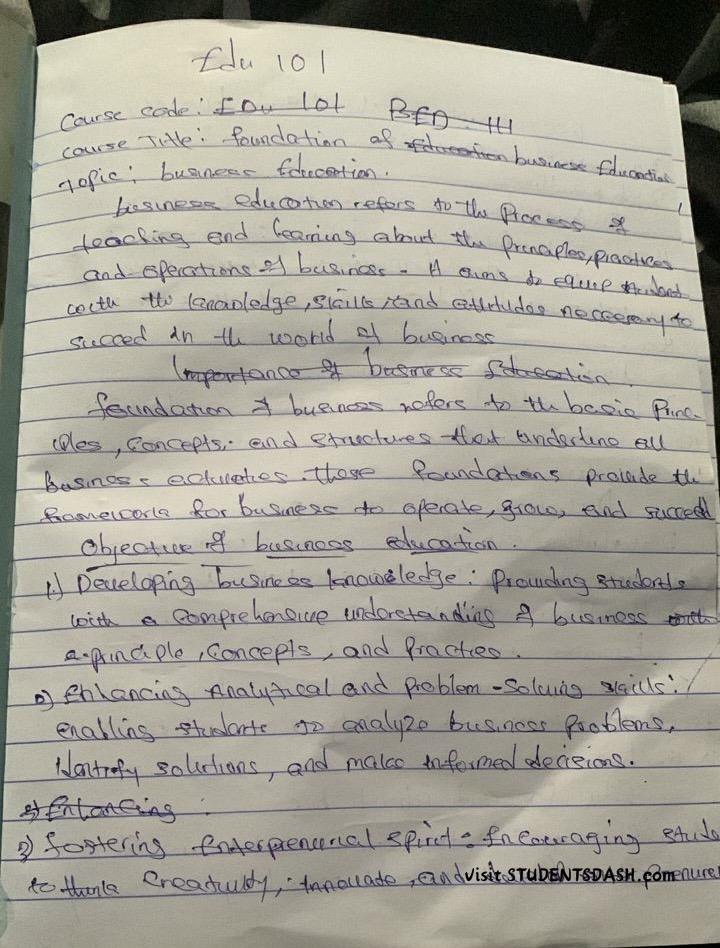 Edu 101
Course code: EDu 101 BED 111
Course Title: foundation of Education business Education
Topic: business Education.
business education refers to the Process of
teaching and learning about the Principles, practices
and operations of business. It aims to equip student
with the knowledge, skills, and attitudes neccessary to
succeed in the world of business
Importance of business Education.
foundation of business refers to the basic Princ-
iples, concepts, and structures that underline all
business activities. These foundations provide the
framework for business to operate, grow, and succeed
Objective of business education.
1.) Developing business knowledge: Providing students
with a comprehensive understanding of business with
a principle, concepts, and practies.
2) Enhancing Analytical and problem-solving skills:
enabling students to analyze business problems,
Identify solutions, and make informed decisions.
3) Enhancing
3) fostering Enterpreneurial spirit: Encouraging stude
to think creatively, innovate, and
Visit STUDENTSDASH.com
prenure